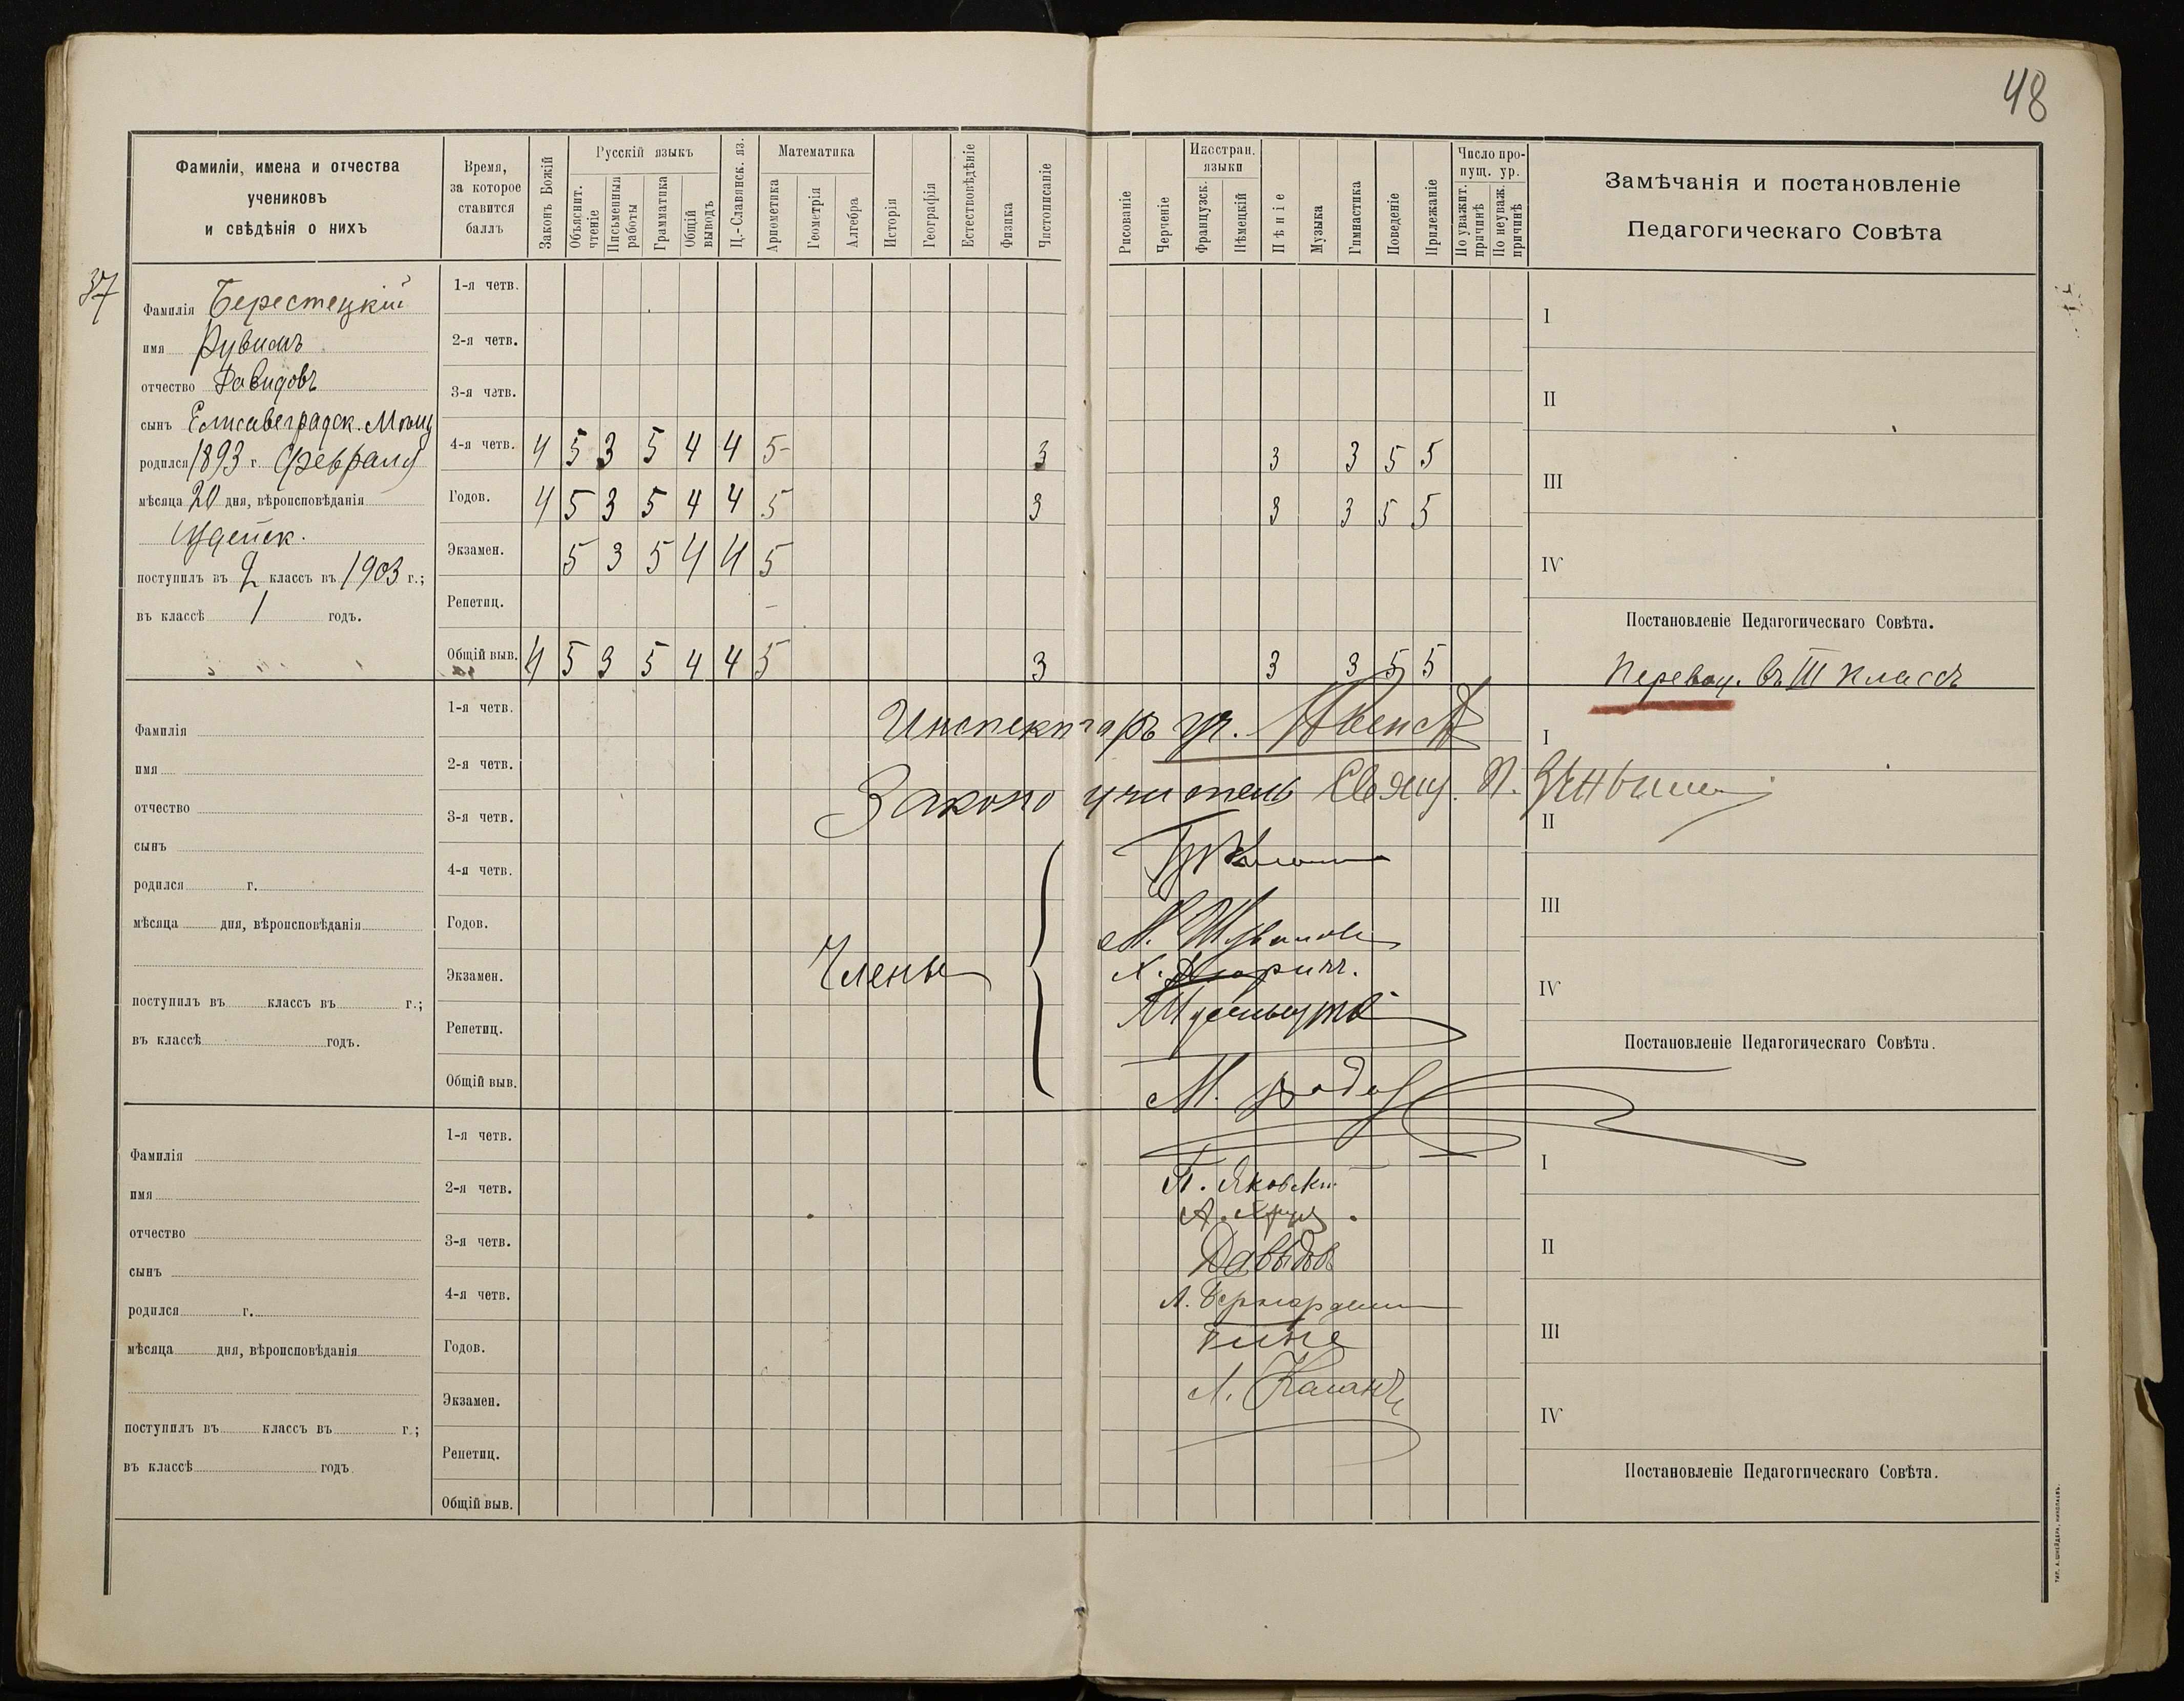 48
Фамиліи, имена и отчества
учениковъ
и свѣдѣнія о нихъ
Время,
за которое
ставится
баллъ
Законъ Божій
Русскій языкъ
Объяснит. чтеніе
Письменныя работы
Грамматика
Общій выводъ
Ц.-Славянск. яз.
Математика
Ариөметика
Геометрія
Алгебра
Исторія
Географія
Естествовѣдѣніе
Физика
Чистописаніе
Рисованіе
Черченіе
Иностран. языки
Французск.
Нѣмецкій
Пѣніе
Музыка
Гимнастика
Поведеніе
Прилежаніе
Число пропущ. ур.
По уважит. причинѣ
По неуваж. причинѣ
Замѣчанія и постановленіе
Педагогическаго Совѣта
37
Фамилія Берестецкій
имя Рувимъ
отчество Давидовъ
сынъ Елисаветградск. Мѣщ
родился 1893 г. Февраля
мѣсяца 20 дня, вѣроисповѣданія
Іудейск.
поступилъ въ 2 классъ въ 1903 г.;
въ классѣ 1 годъ.
1-я четв.
2-я четв.
3-я четв.
4-я четв. 4 5 3 5 4 4 5- 3 3 3 5 5
Годов. 4 5 3 5 4 4 5 3 3 3 5 5
Экзамен. 5 3 5 4 4 5
Репетиц. –
Общій выв. 4 5 3 5 4 4 5 3 3 3 5 5
I
II
III
IV
Постановленіе Педагогическаго Совѣта.
Перевод. въ III классъ
Фамилія
имя
отчество
сынъ
родился г.
мѣсяца дня, вѣроисповѣданія
поступилъ въ классъ въ г.;
въ классѣ годъ.
1-я четв.
2-я четв.
3-я четв.
4-я четв.
Годов.
Экзамен.
Репетиц.
Общій выв.
Инспекторъ уч.
Законоучитель Свящ. П.
Члены
М.
Х.
М.
I
II
III
IV
Постановленіе Педагогическаго Совѣта.
Фамилія
имя
отчество
сынъ
родился г.
мѣсяца дня, вѣроисповѣданія
поступилъ въ классъ въ г.;
въ классѣ годъ.
1-я четв.
2-я четв.
3-я четв.
4-я четв.
Годов.
Экзамен.
Репетиц.
Общій выв.
П. Яковскій
А.
Давыдовъ
Л.
Л.
I
II
III
IV
Постановленіе Педагогическаго Совѣта.
ТИП. А. ШНЕЙДЕРА, НИКОЛАЕВЪ.